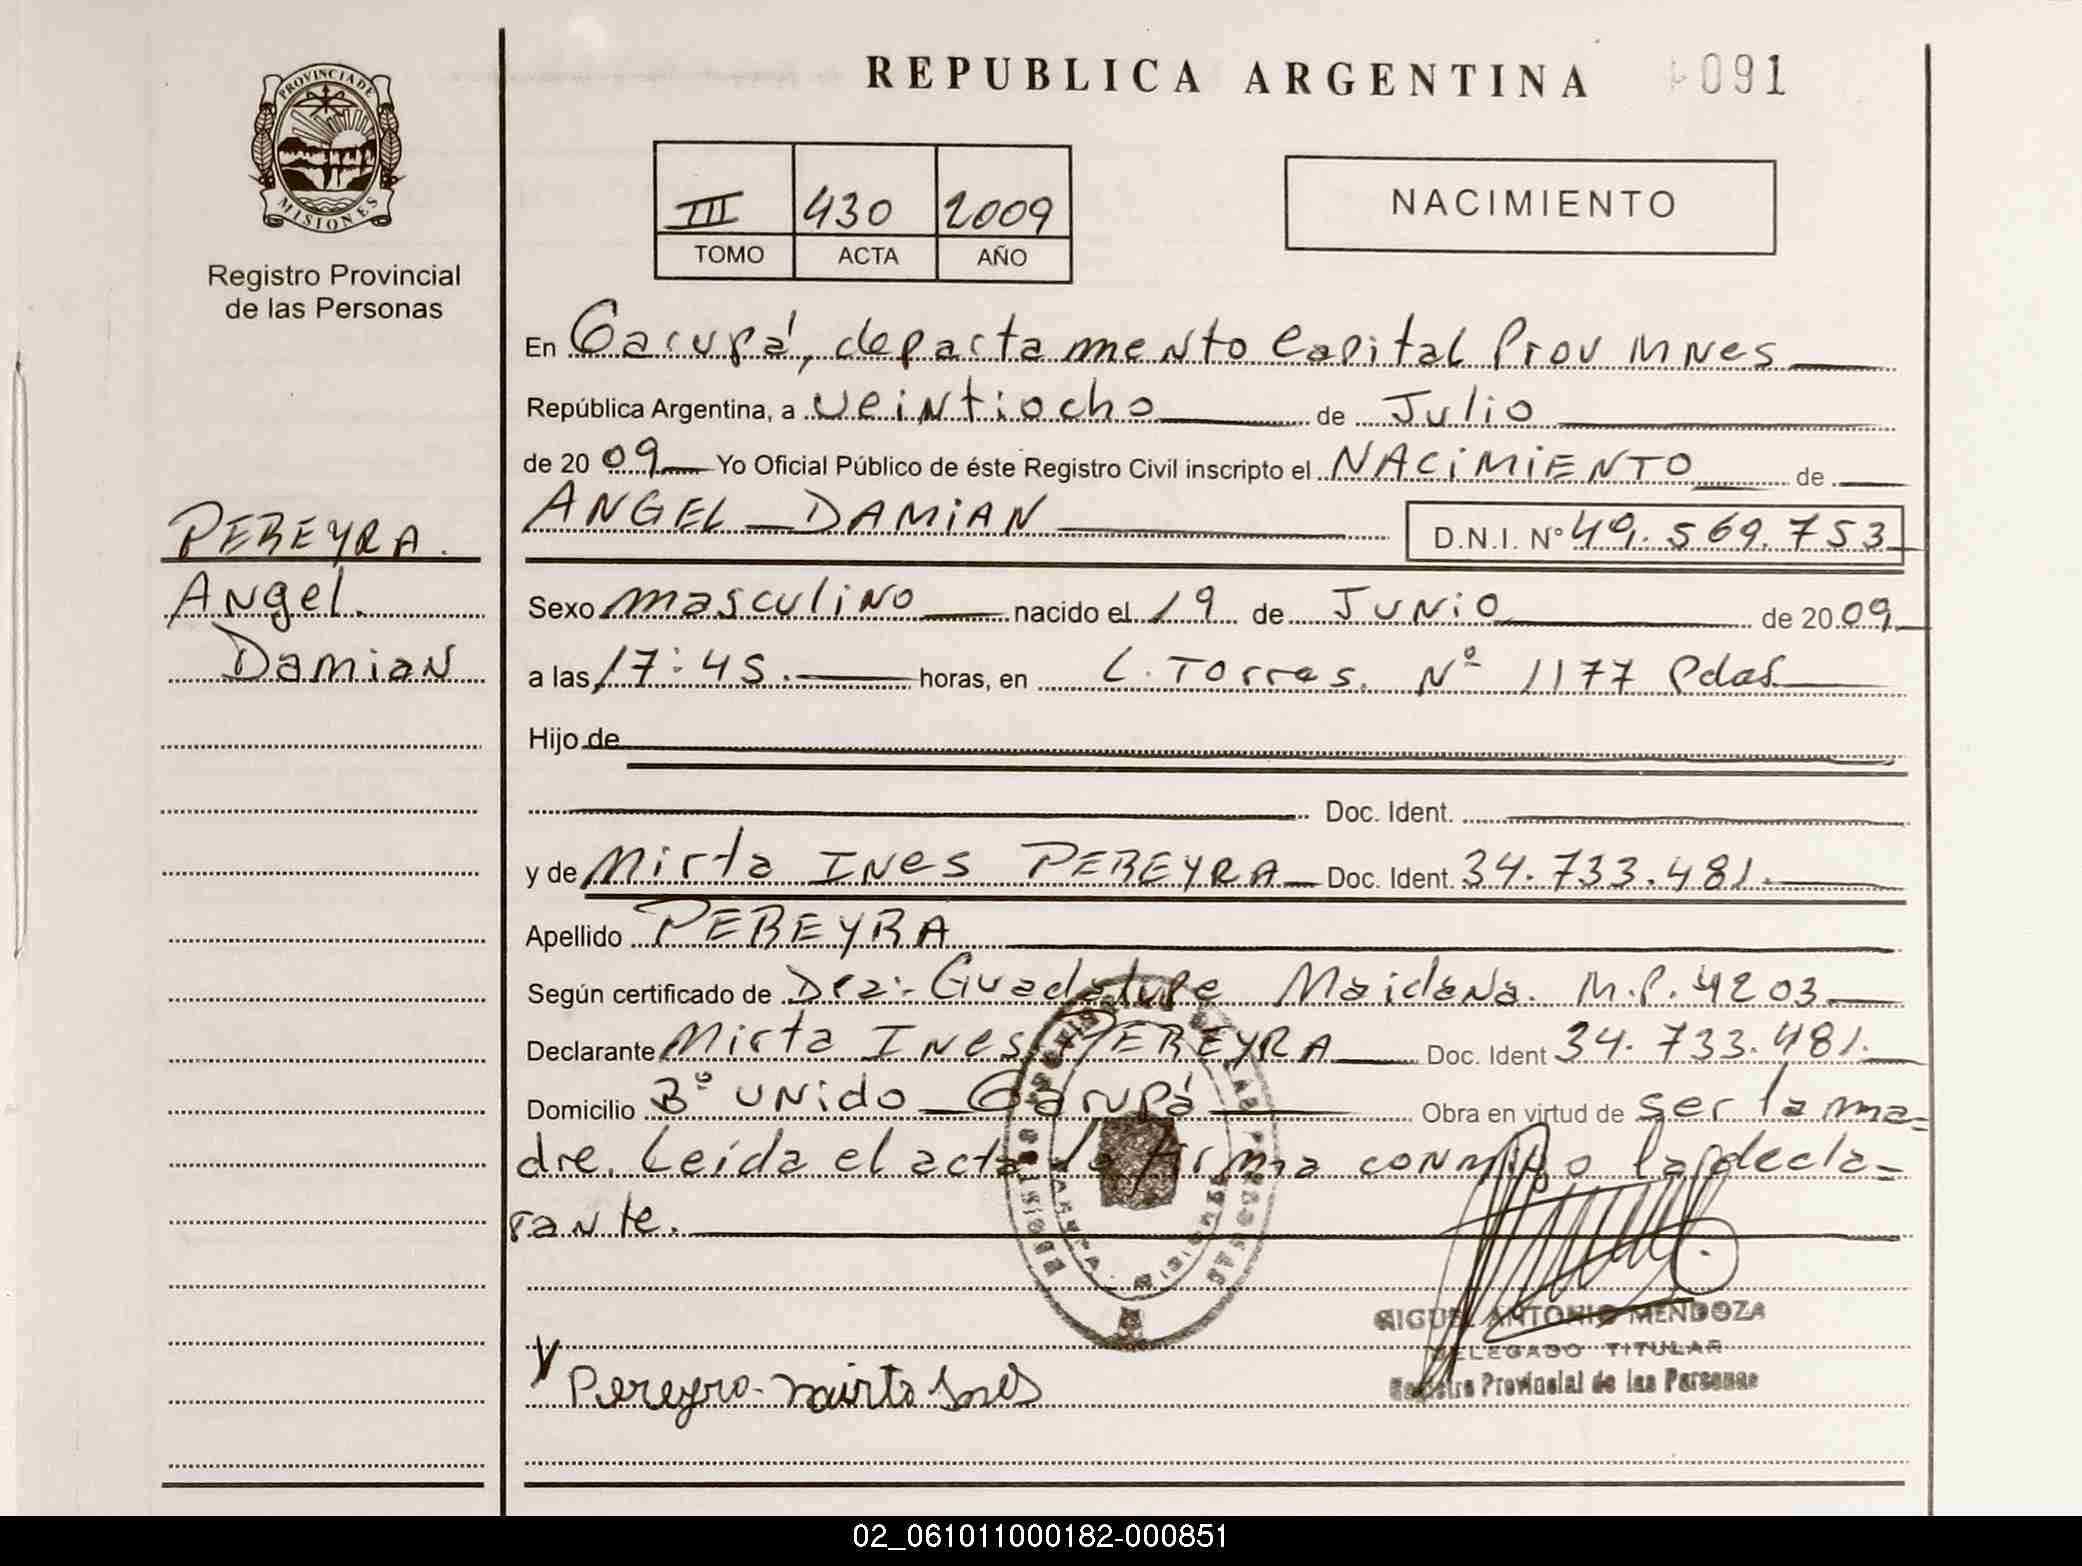 REPUBLICA ARGENTINA 091
PROVINCIA DE
MISIONES
Registro Provincial
de las Personas
III 430 2009
TOMO ACTA AÑO
NACIMIENTO
En Garupá, departamento Capital Prov Mnes
República Argentina, a veintiocho de Julio
de 2009 Yo Oficial Público de éste Registro Civil inscripto el NACIMIENTO de
ANGEL DAMIAN D.N.I. Nº 49.569.753
PEREYRA.
Angel
Damian
Sexo masculino nacido el 19 de Junio de 2009
a las 17:45. horas, en L. Torres. Nº 1177 Pdas.
Hijo de
Doc. Ident.
y de Mirta Ines PEREYRA Doc. Ident. 34.733.481.
Apellido PEREYRA
Según certificado de Dra: Guadalupe Maidana. M.P. 4203
Declarante Mirta Ines PEREYRA Doc. Ident 34.733.481.
Domicilio Bº Unido Garupá Obra en virtud de ser la ma=
dre. Leída el acta la firma conmigo la decla-
rante.
MIGUEL ANTONIO MENDOZA
DELEGADO TITULAR
Registro Provincial de las Personas
Pereyra Mirta Ines
02_061011000182-000851